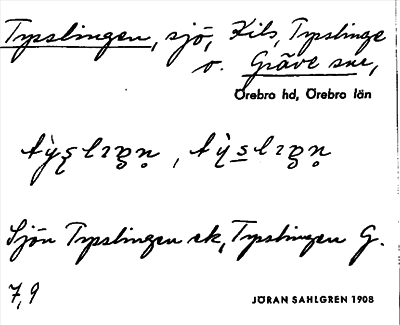 Tysslingen, sjö, Kils, Tysslinge
o. Gräve snr,
Örebro hd, Örebro län
Sjön Tysslingen ek, Tysslingen G.
7,9
JÖRAN SAHLGREN 1908